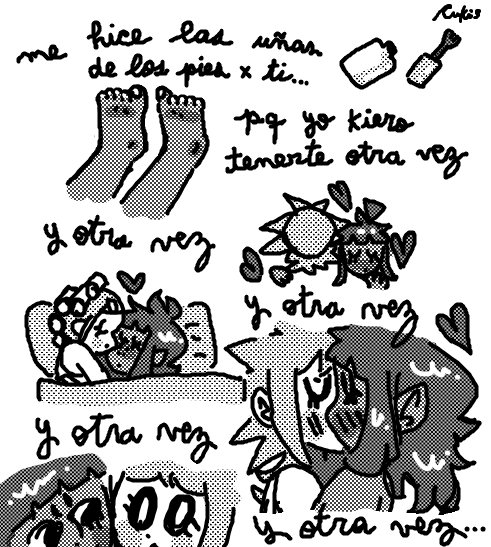 Rukis
me hice las uñas
de los pies x ti...
pq yo kiero
tenerte otra vez
y otra vez
y otra vez
y otra vez
y otra vez...